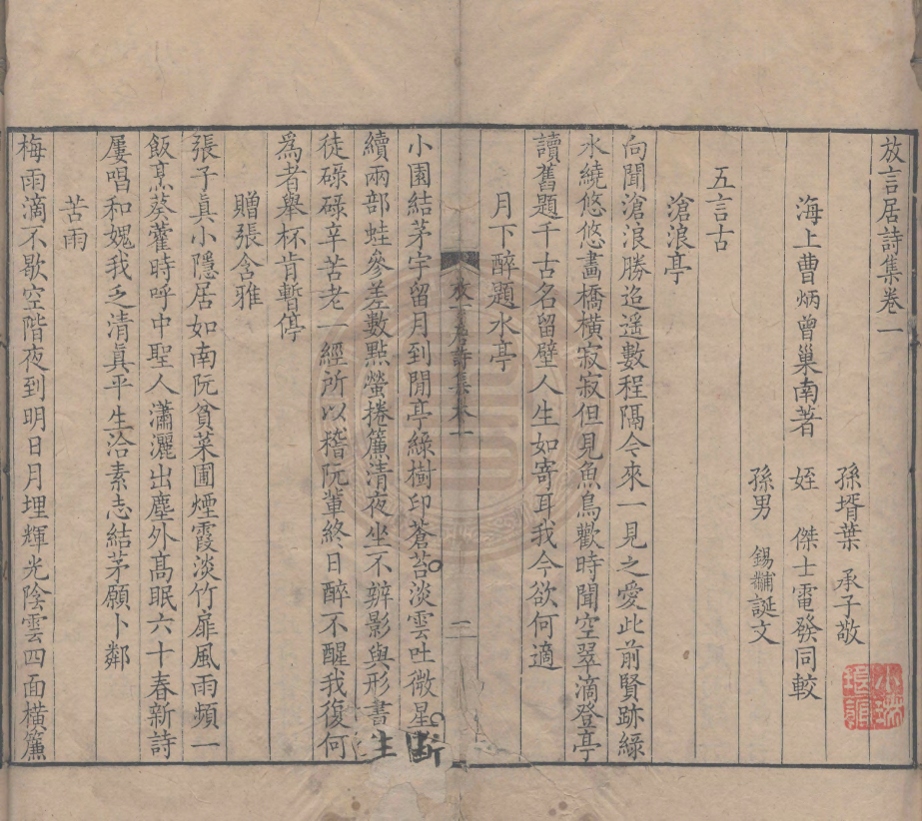 放言居詩集卷一
孫壻葉 承子敬
海上曹炳曾巢南著 姪 傑士電發同較
孫男 錫黼誕文
五言古
滄浪亭
向聞滄浪勝迢遥數程隔今來一見之愛此前賢跡綠
水繞悠悠畫橋橫寂寂但見魚鳥歡時聞空翠滴登亭
讀舊題千古名留壁人生如寄耳我今欲何適
月下醉題水亭
放言居詩集卷一
一
小園結茅宇留月到閒亭綠樹印蒼苔淡雲吐微星斷
續兩部蛙參差數點螢捲簾清夜坐不辨影與形書生
徒碌碌辛苦老一經所以稽阮輩終日醉不醒我復何
為者舉杯肯暫停
贈張含雅
張子真小隱居如南阮貧菜圃煙霞淡竹扉風雨頻一
飯烹葵藿時呼中聖人瀟灑出塵外高眠六十春新詩
屢唱和媿我乏清真平生洽素志結茅願卜鄰
苦雨
梅雨滴不歇空階夜到明日月埋輝光陰雲四面橫簾